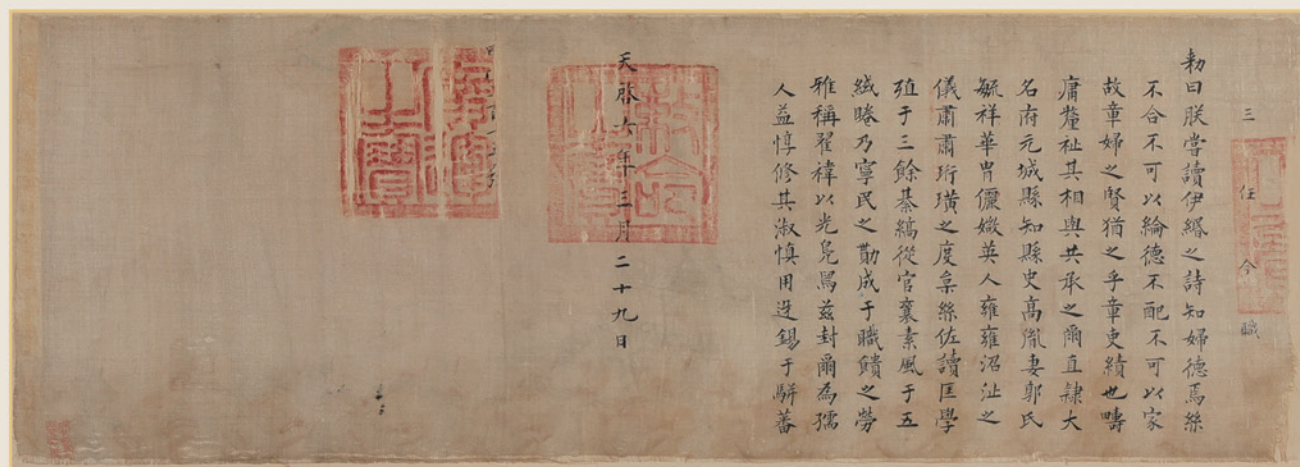 三任今職
勑曰朕嘗讀伊緡之詩知婦德焉絲
不合不可以綸德不配不可以家
故章婦之賢猶之乎章吏績也疇
庸釐祉其相與共承之爾直隷大
名府元城縣知縣史高胤妻郭氏
毓祥華胄儷媺英人雍雍沼沚之
儀肅肅珩璜之度枲絲佐讀匡學
殖于三餘綦縞從官襄素風于五
緎睠乃寧民之勤成于職饋之勞
雅稱翟褘以光鳧舄茲封爾為孺
人益惇修其淑慎用迓錫于駢蕃
天啟六年三月二十九日
敕命之寶
之寶